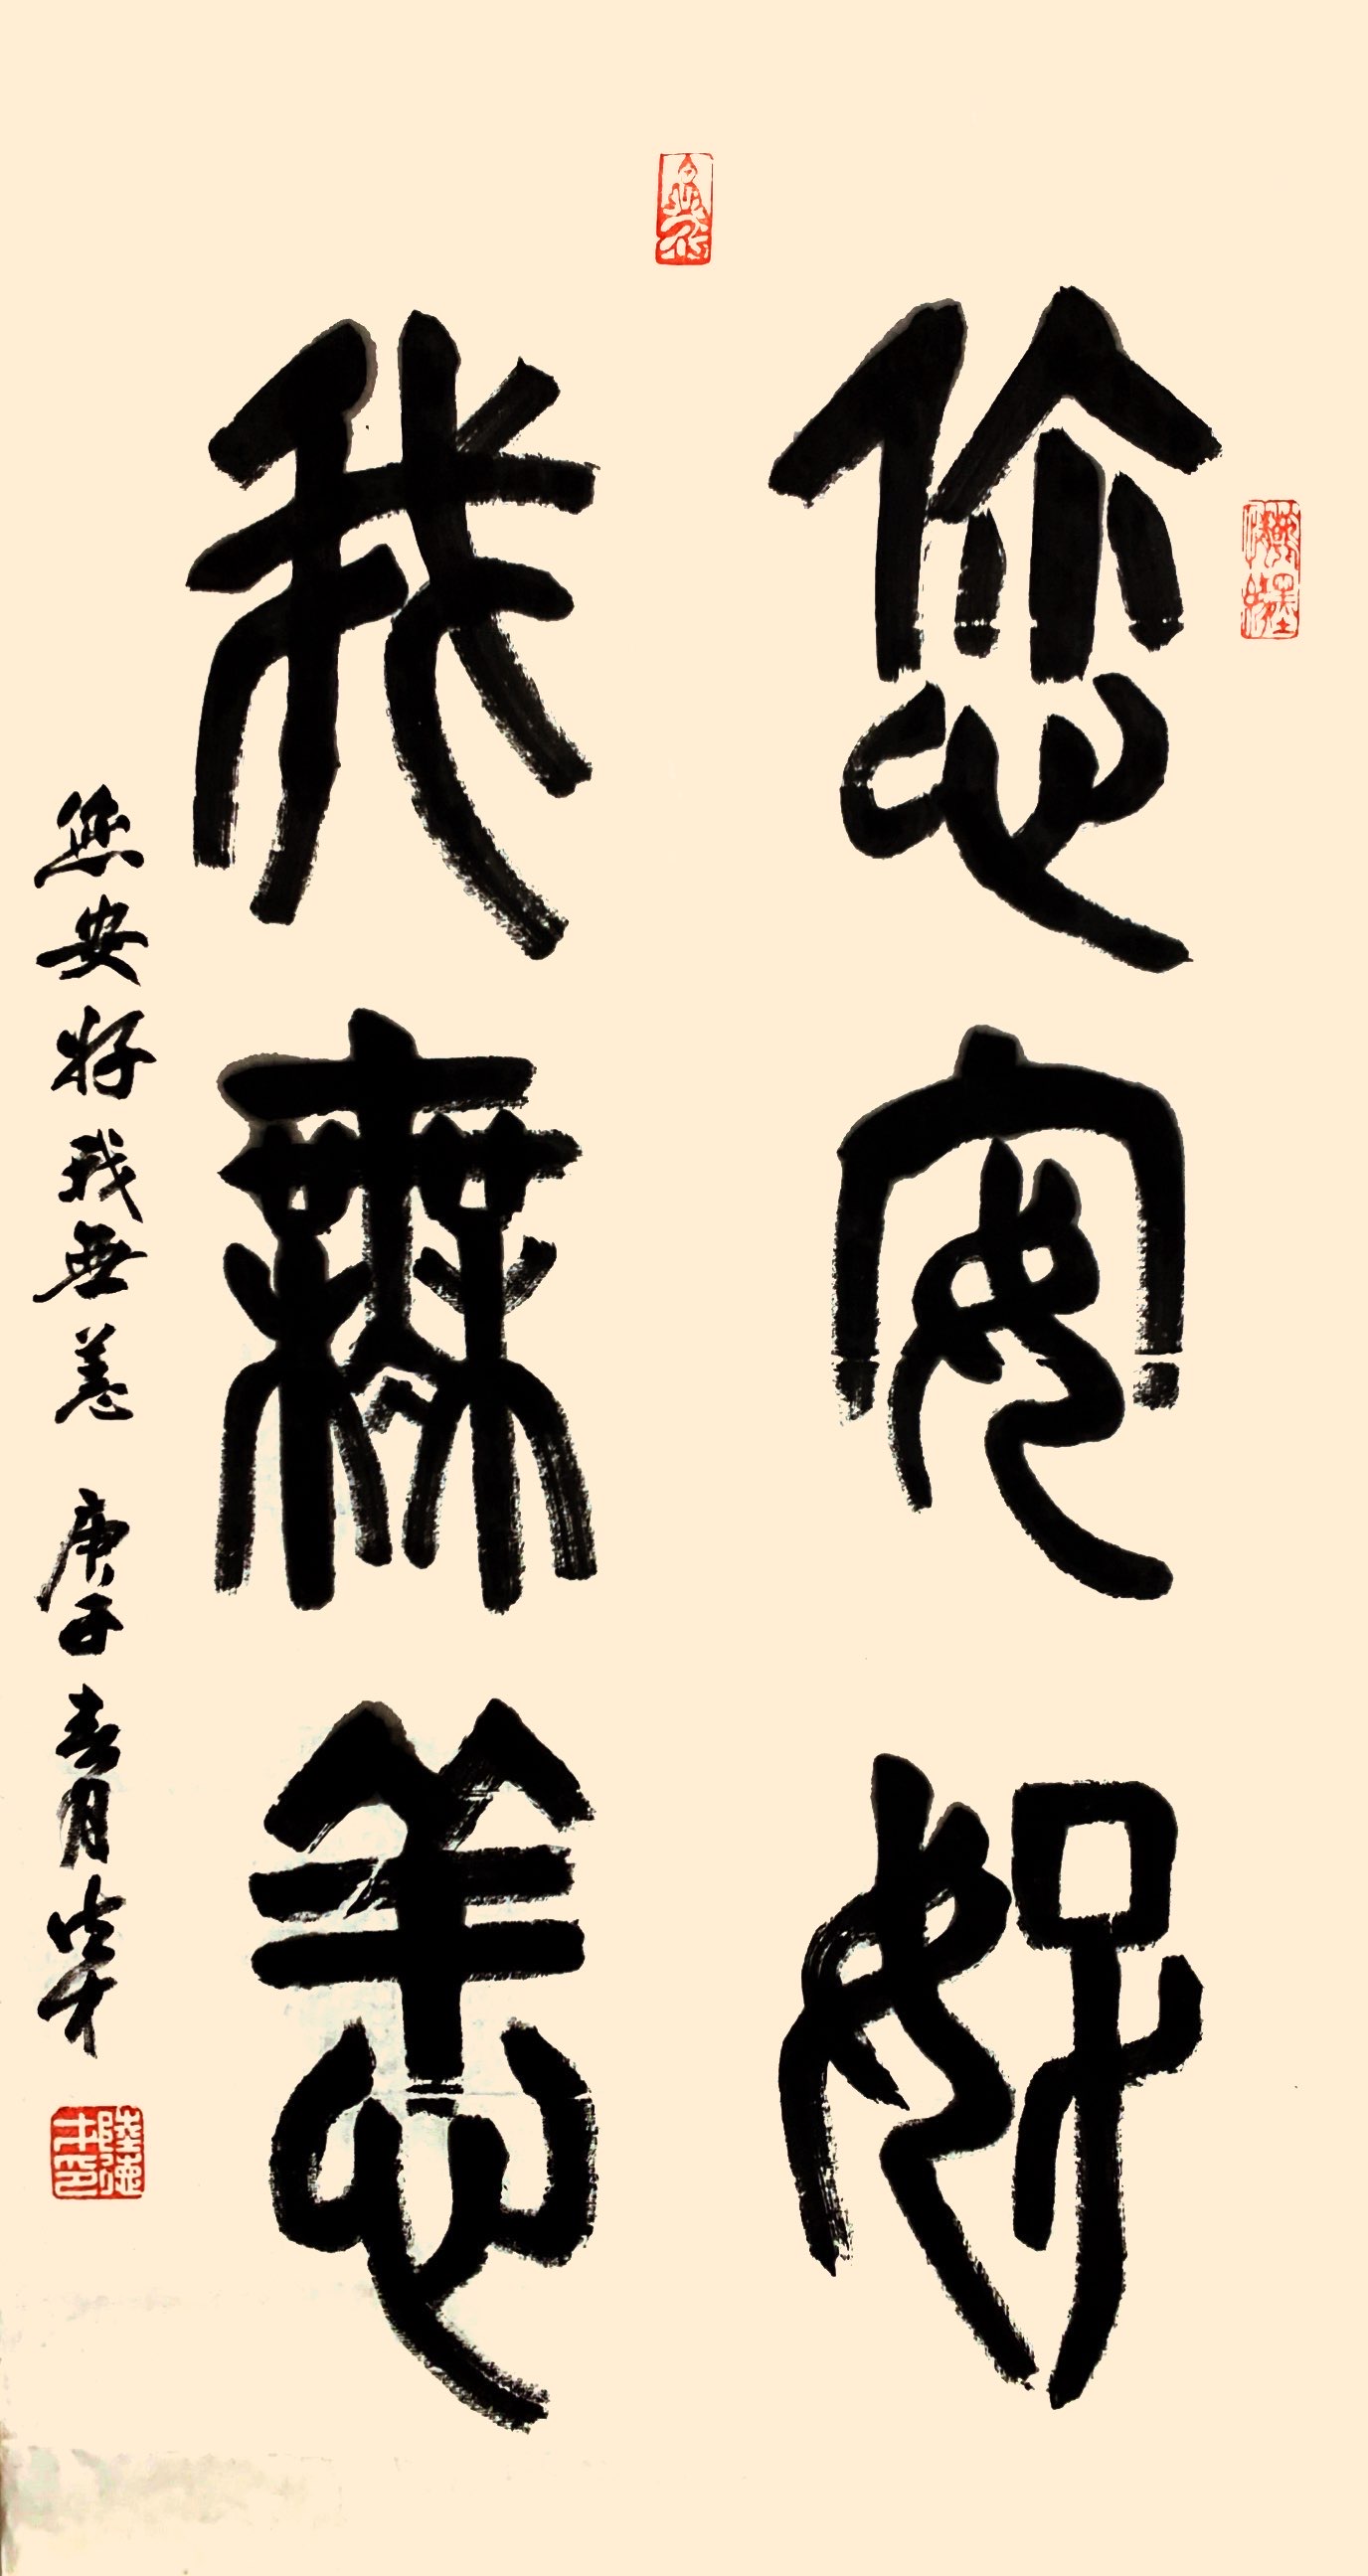 您安好
我無恙
您安好我無恙 庚子春月